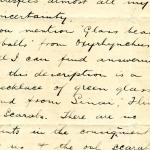 almost all my
uncertainty.
you mention "Glass bea
balls" from Oxyrhynchus
d I can find answering
this description is a
necklace of green glass
and from Sinai, Flin
Scarabs. There are no
in the consignment
& the only scarab